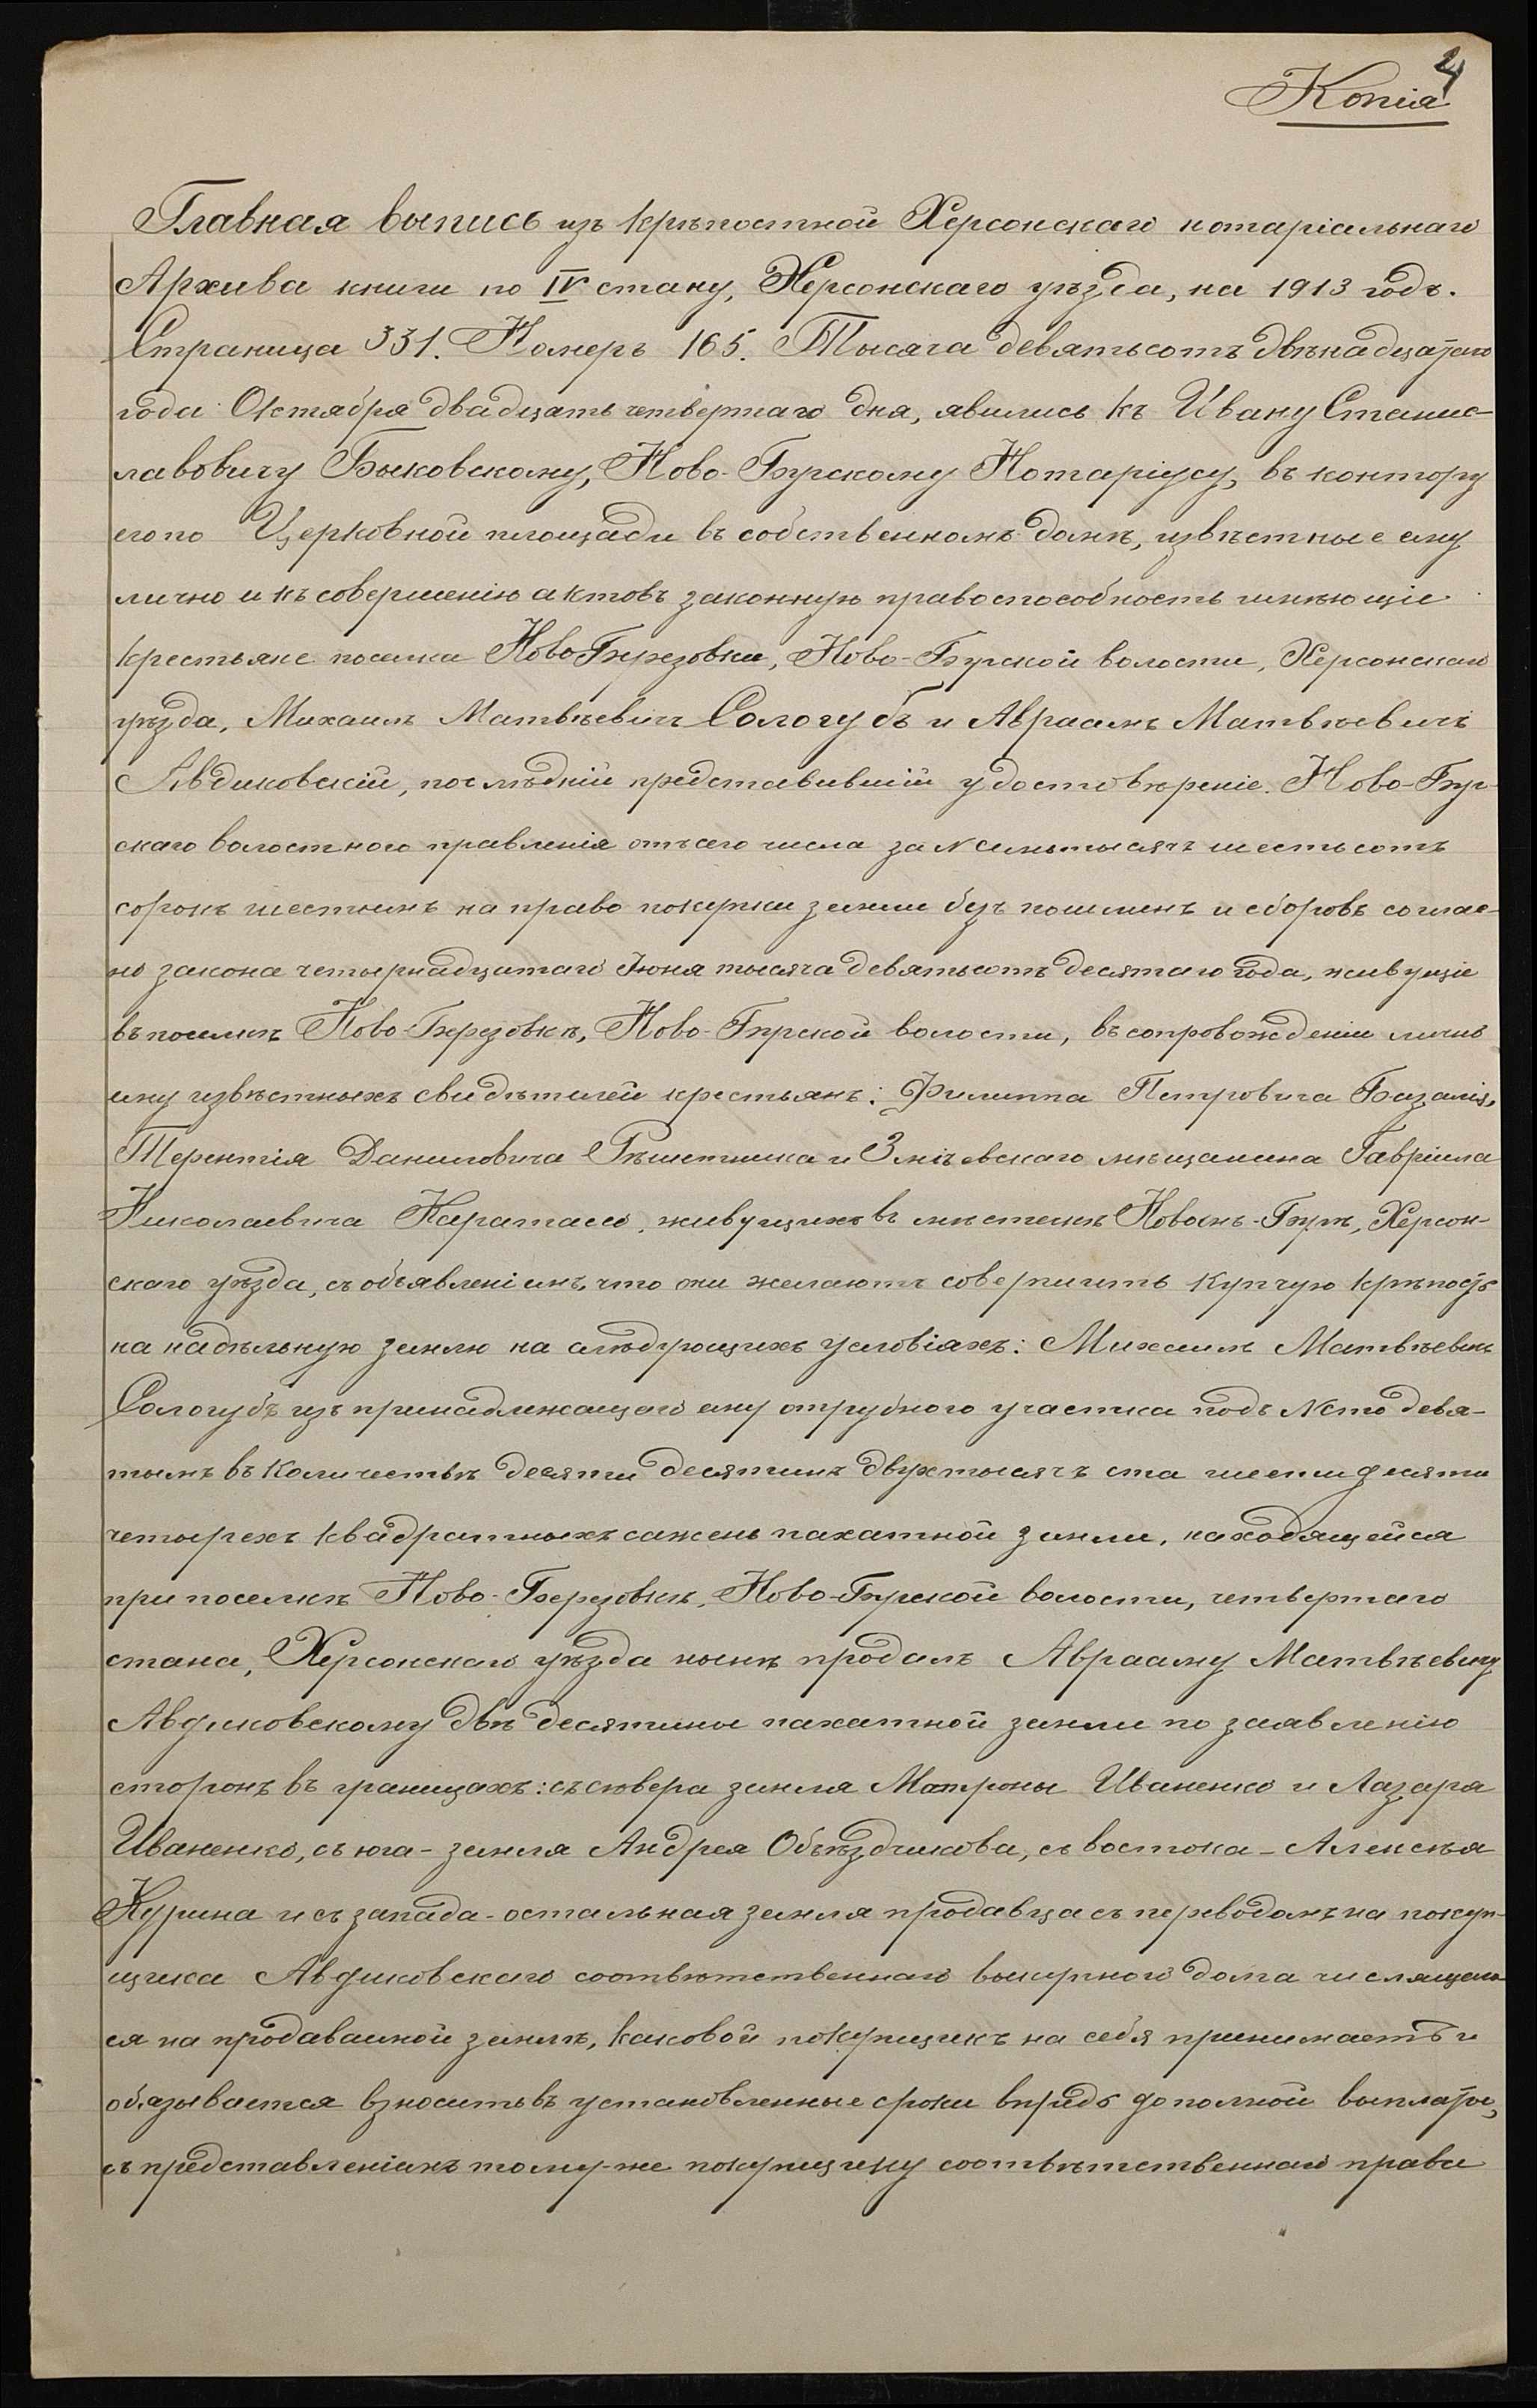 4
Копія
Главная выпись изъ крѣпостной Херсонскаго нотаріальнаго
Архива книги по IV стану, Херсонскаго уѣзда, на 1913 годъ.
Страница 331. Номеръ 165. Тысяча девятьсотъ двѣнадцатаго
года Октября двадцать четвертаго дня, явились къ Ивану Станис-
лавовичу Быковскому, Ново-Бугскому Нотаріусу, въ контору
его по Церковной площади въ собственномъ домѣ, извѣстные ему
лично и къ совершенію актовъ законную правоспособность имѣющіе
крестьяне поселка Ново Березовки, Ново-Бугской волости, Херсонскаго
уѣзда, Михаилъ Матвѣевичъ Сологубъ и Авраамъ Матвѣевичъ
Авдиковскій, послѣдній представившій удостовѣреніе Ново-Буг-
скаго волостного правленія отъ сего числа за № семьтысячъ шестьсотъ
сорокъ шестымъ на право покупки земли безъ пошлинъ и сборовъ соглас-
но закона четырнадцатаго Іюня тысяча девятьсотъ десятаго года, живущіе
въ поселкѣ Ново-Березовкѣ, Ново-Бугской волости, въ сопровожденіи лично
ему извѣстныхъ свидѣтелей крестьянъ: Филиппа Петровича Базалія,
Терентія Даниловича Рѣшетника и Зміевскаго мѣщанина Гавріила
Николаевича Каратаева, живущихъ въ мѣстечкѣ Новомъ-Бугѣ, Херсон-
скаго уѣзда, съ объявленіемъ, что они желаютъ совершить купчую крѣпость
на надѣльную землю на слѣдующихъ условіяхъ: Михаилъ Матвѣевичъ
Сологубъ изъ принадлежащаго ему отрубного участка подъ № сто девя-
тымъ въ количествѣ десяти десятинъ двухтысячъ ста шестидесяти
четырехъ квадратныхъ сажень пахатной земли, находящейся
при поселкѣ Ново-Березовкѣ, Ново-Бугской волости, четвертаго
стана, Херсонскаго уѣзда нынѣ продалъ Аврааму Матвѣевичу
Авдиковскому двѣ десятины пахатной земли по заявленію
сторонъ въ границахъ: съ сѣвера земля Матроны Иваненко и Лазаря
Иваненко, съ юга - земля Андрея Объѣздчикова, съ востока - Алексѣя
Курина и съ запада - остальная земля продавца съ переводомъ на покуп-
щика Авдиковскаго соотвѣтственнаго выкупного долга числящаго-
ся на продаваемой землѣ, каковой покупщикъ на себя принимаетъ и
обязывается взносить въ установленные сроки впредь до полной выплаты,
съ представленіемъ тому-же покупщику соотвѣтственнаго права